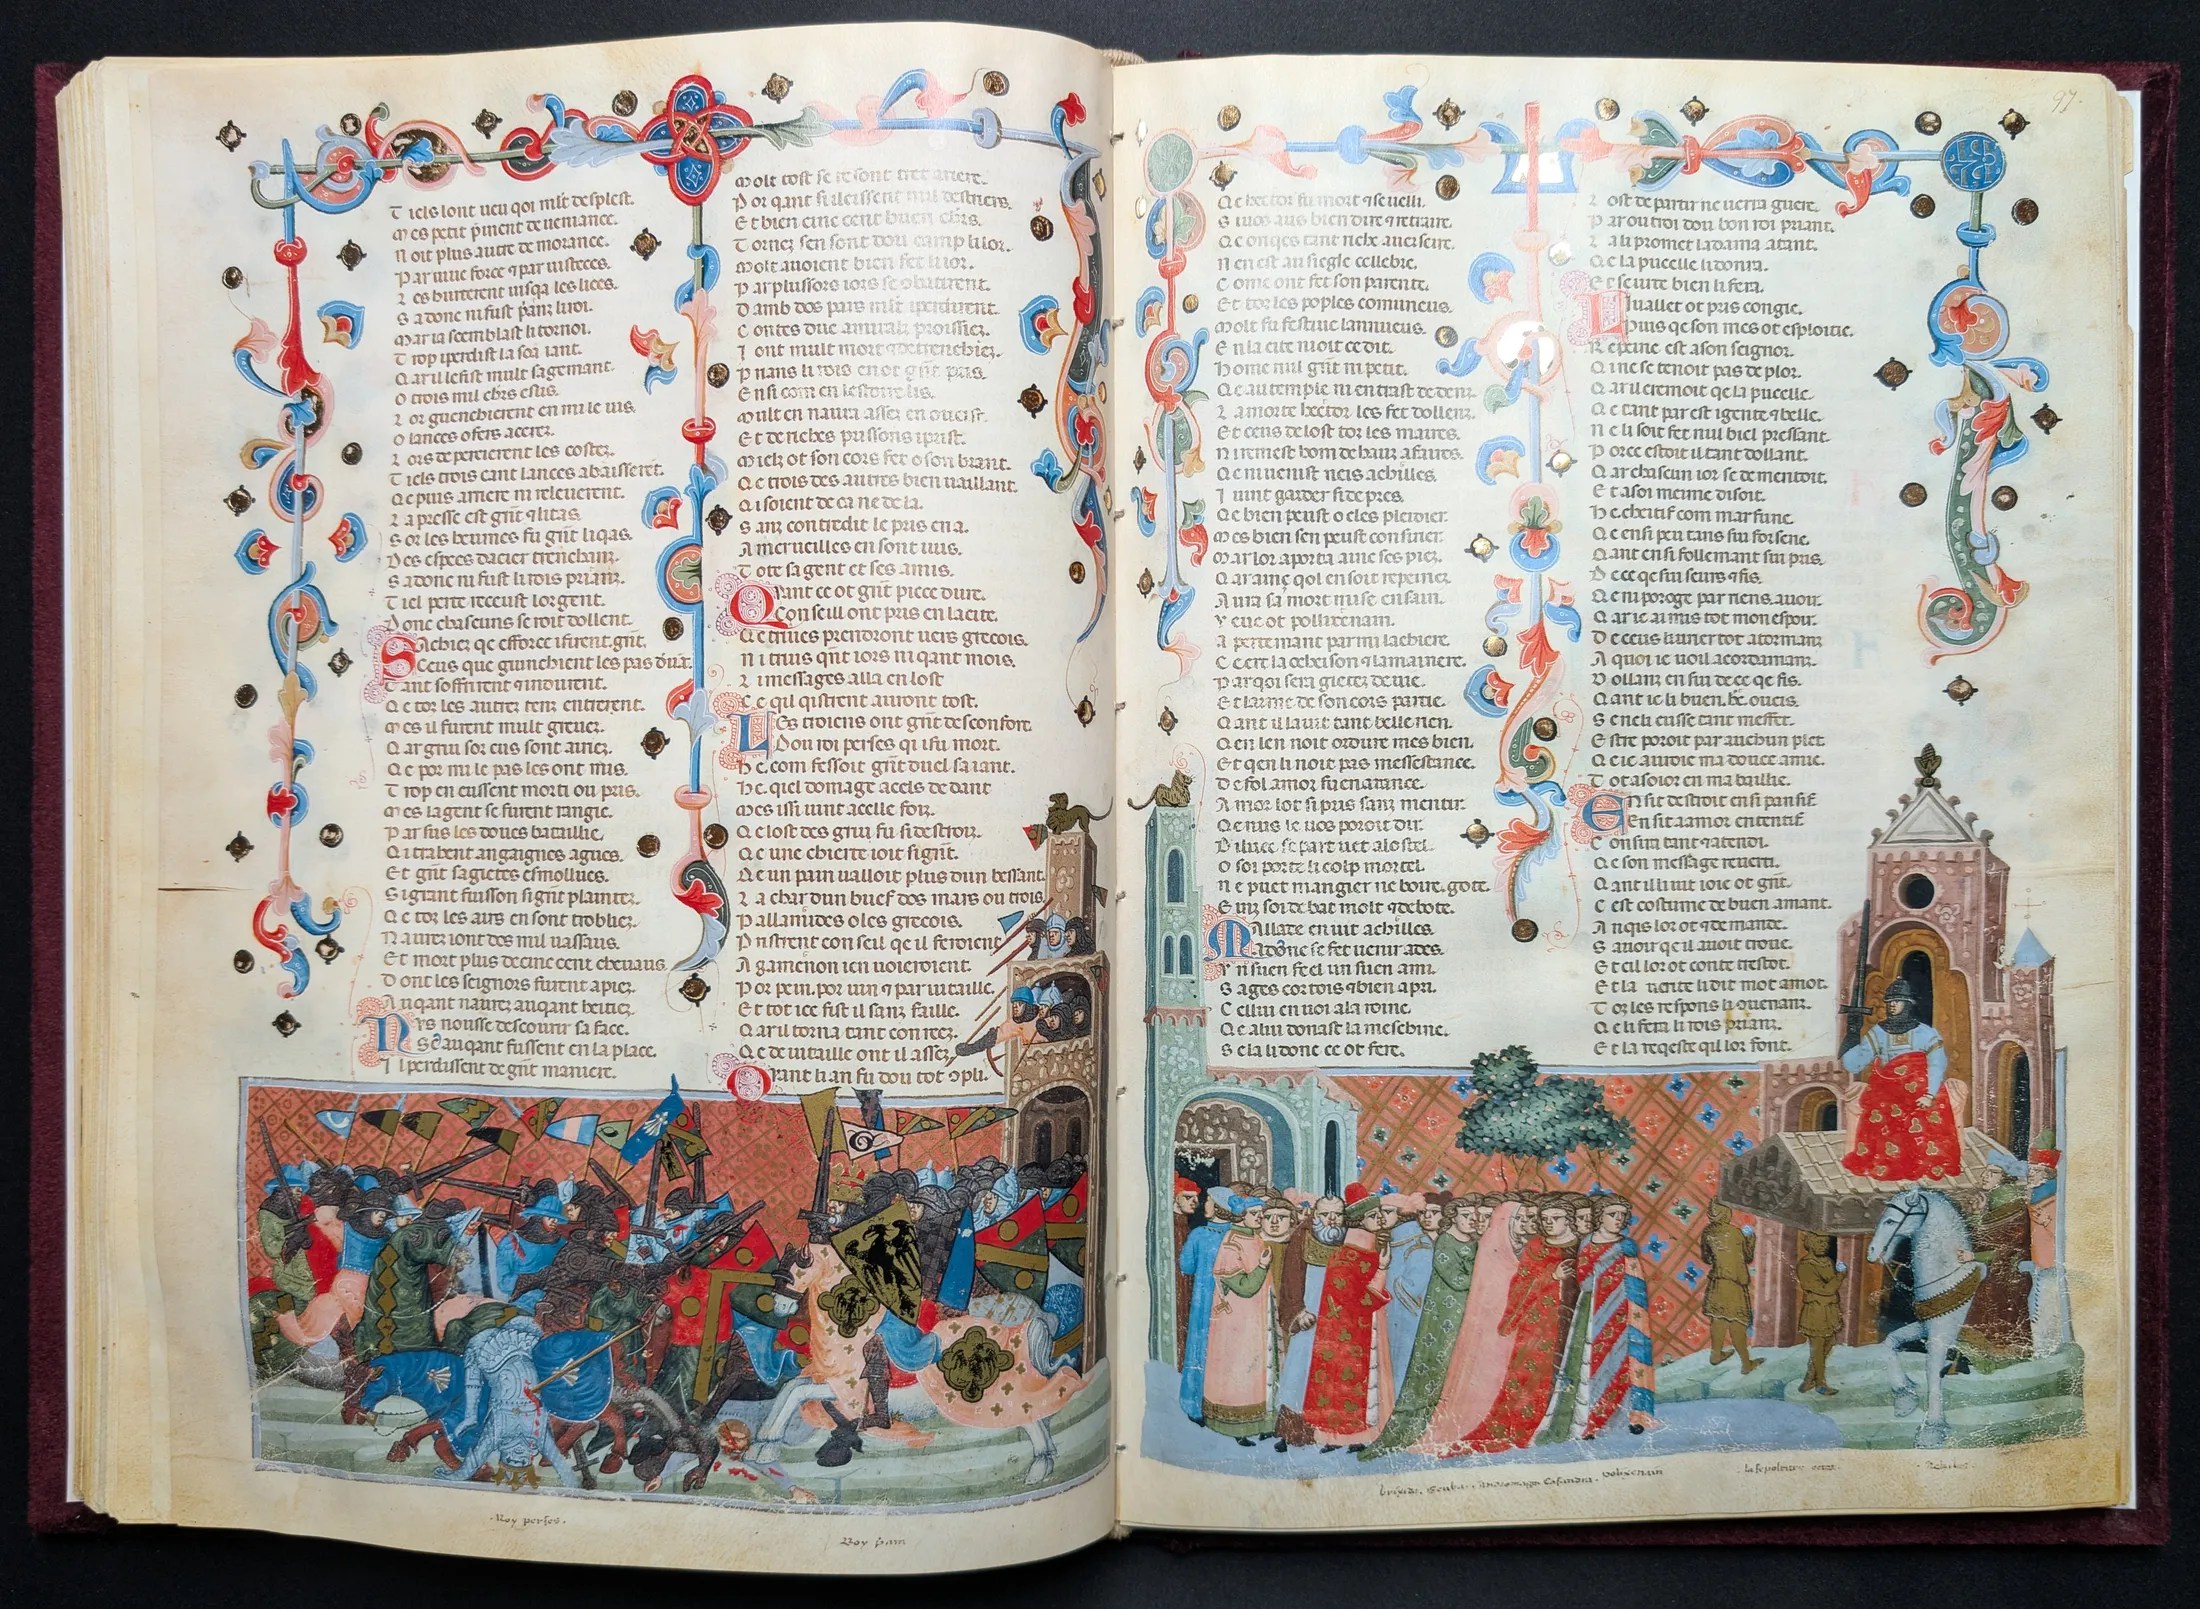 Tiels sont ueu qoi mlt desplest.
Mes petit pment de ueniance.
Noit plus autre de morance.
Par uiue force ⁊ par uisteces.
Les hurterent iusqa les lices.
Sadonc ni fust pianz luroi.
Mar ia scemblast li tornoi.
Trop iperdist la soa iant.
Qar il le fist mult sagemant.
O trois mil chrs esus.
O lances
Lors de percierent les costez.
Tiels trois cant lances abaisserent.
Qe puis arriere ni releuerent.
La presse est gnt ⁊ litas.
Sor les heumes fu gnt li qas.
Des espees dacier trenchanz.
Sadonc ni fust li rois prianz.
Tiel perte receust lor gent.
Donc chascuns seroit dollent.
Sachiez qe efforce ifurent gnt.
Ceus que guinchient les pas dur.
Tant soffrirent ⁊ indurent.
Qe toz les autrez renz entrerent.
Mes il furent mult greuez.
Qar griu sor eus sont
Qe por mi le pas les ont mis.
Trop en eussent morti ou pris.
Mes la gent se furent rangie.
Par sus les doues bataillie.
Qi trahent angaignes agues.
Et gnt sagietes esmollues.
Si grant fuisson si gnt plaintez.
Qe toz les airs en sont trobliez.
Naurez iont dos mil uassaus.
Et mort plus de cinc cent cheuaus.
Dont les seignors furent apiez.
Auqant naurez auqant heitiez.
Nus nousse descourir sa face.
Sil auqant fussent en la place.
Il perdissent de gnt maniere.
Molt tost se resont tret ariere.
Por qant si ileissent mil destriers.
Et bien cinc cent buen chrs.
Tornez sen sont dou camp li lor.
Molt auoient bien fet li ior.
Par plussors iors se conbatirent.
Damb dos pars mlt iperdirent.
Contes duc amiralz proissiez.
I ont mult mort
Prians li rois en ot gnt pris.
Ensi com en lestoire lis.
Mult en naura assez en ocist.
Et de riches prissons iprist.
Miels ot son cors fet o son brant.
Qe trois des autres bien uaillant.
Qi soient de ca ne de la.
Sanz contredit le pris en a.
A merueilles en sont uuis.
Tote sa gent et ses amis.
Qant ce ot gnt piece dure.
Conseill ont pris en la cite.
Qe triues prendront uers grecois.
Ni truis qnt iors ni qant mois.
Li messages alla en lost
Ce qil qistrent auront tost.
Les troiens ont gnt desconfort.
Dou roi perses qi ifu mort.
He com fessoit gnt duel sa iant.
He quel domage a cels dedant
Mes issi uint acelle foiz.
Qe lost des griu fu si destroiz.
Qe une chierte ioit si gnt.
Qe un pain ualloit plus dun bessant.
La char dun buef dos mars ou trois.
Pallamides o les grecois.
Pristrent conseil qe il feroient
Agamenon ien uoieroient.
Por pein por uin ⁊ por uitaille.
Et tot ice fist il sanz faille.
Qar il torna tant conreez.
Qe de uitaille ont il assez.
Qant li an fu dou tot opli.
97.
Qe hector fu mort ⁊ seuelli.
Si uos aus bien dire ⁊ retraire.
Qe onqes tant riche auerseire.
Nen est au siegle cellebre.
Come ont fet son parente.
Et toz les poples comuneus.
Molt fu festiue lanniueus.
En la cite nioit ce dit.
Home nul gnt ni petit.
Qe au temple ni entrast dedenz.
La morte hector les fet dollenz.
Et cens de lost toz les maires.
Ni remest hom de hauz afaires.
Qe ni uenist neis achilles.
I uint garder si de pres.
Qe bien peust o eles pleidier.
Mes bien sen peust consirier.
Mar lor aporta anc ses piez.
Qar ainc qol en soit repeiriez.
Aura sa mort mise en sain.
Veue ot pollixenain.
Apertemant parmi la chiere.
Cert la ochoison ⁊ la mainere.
Par qoi sera gietez de uie.
Et larme de son cors partie.
Qant il la uit tant belle rien.
Qen len noit ordure mes bien.
Et qen li noit pas messestance.
De fol amor fu en atance.
Amor lot si pris sanz mentir.
Qe nus le uos poroit dir.
Diluec se part uet alostel.
O soi porte li colp mortel.
Ne puet mangier ne boire gote.
Enuz soi debat molt ⁊ debote.
Mallade en uit achilles.
Yn suen feel un suen ami.
Sages cortois ⁊ bien apri.
Cellui enuoi a la roine.
Qe alui donast la meschine.
Se la li done ce ot fere.
Lost departir ne uerra guere.
Par ou troi dou bon roi priant.
La li promet la dama atant.
Qe la pucelle li donra.
Et se uite bien li fera.
Li uallet ot pris congie.
Puis qe son mes ot esploitie.
Repeire est a son seignor.
Qi ne se tenoit pas de plor.
Qar il cremoit qe la pucelle.
Qe tant par est igente ⁊ belle.
Ne li soit fet nul biel pressant.
Porce estoit il tant dollant.
Qar chascun ior se dementoit.
Et a soi meime disoit.
He cheitif com mar fu ne.
Qe ensi peu tans sui forsene.
Qant ensi follemant sui pris.
De ce qe sui seurs ⁊ fis.
Qe ni poroge par riens auoir.
Qar ie ai mis tot mon espoir.
De ceus liurer tot a tormanz
A quoi ie uoil acordamanz.
Dollanz en sui de ce qe fis.
Qant ie li buen
Se ne li eusse tant meffet.
Estre poroit par auchun plet
Qe ie auroie ma douce amie.
Tot a soior en ma baillie.
Ensit destroit en si pansif
En sit a amor ententif
Consirra tant ⁊ atendi.
Qe son message reuerti.
Qant il li uit ioie ot gnt.
Cest costume de buen amant.
Anqis lor ot ⁊ demande.
Sauoir qe il auoit troue.
Et cil lor ot conte trestot.
Et la uerite li dit mot amot.
Toz les respons li queranz.
Qe li fera li rois prianz.
Et la reqeste qil lor font.
.Roy perses.
Roy priam
briseida. Ecuba. Andromaqa Casandra. polixenain
la sepolture ector.
Achilles.